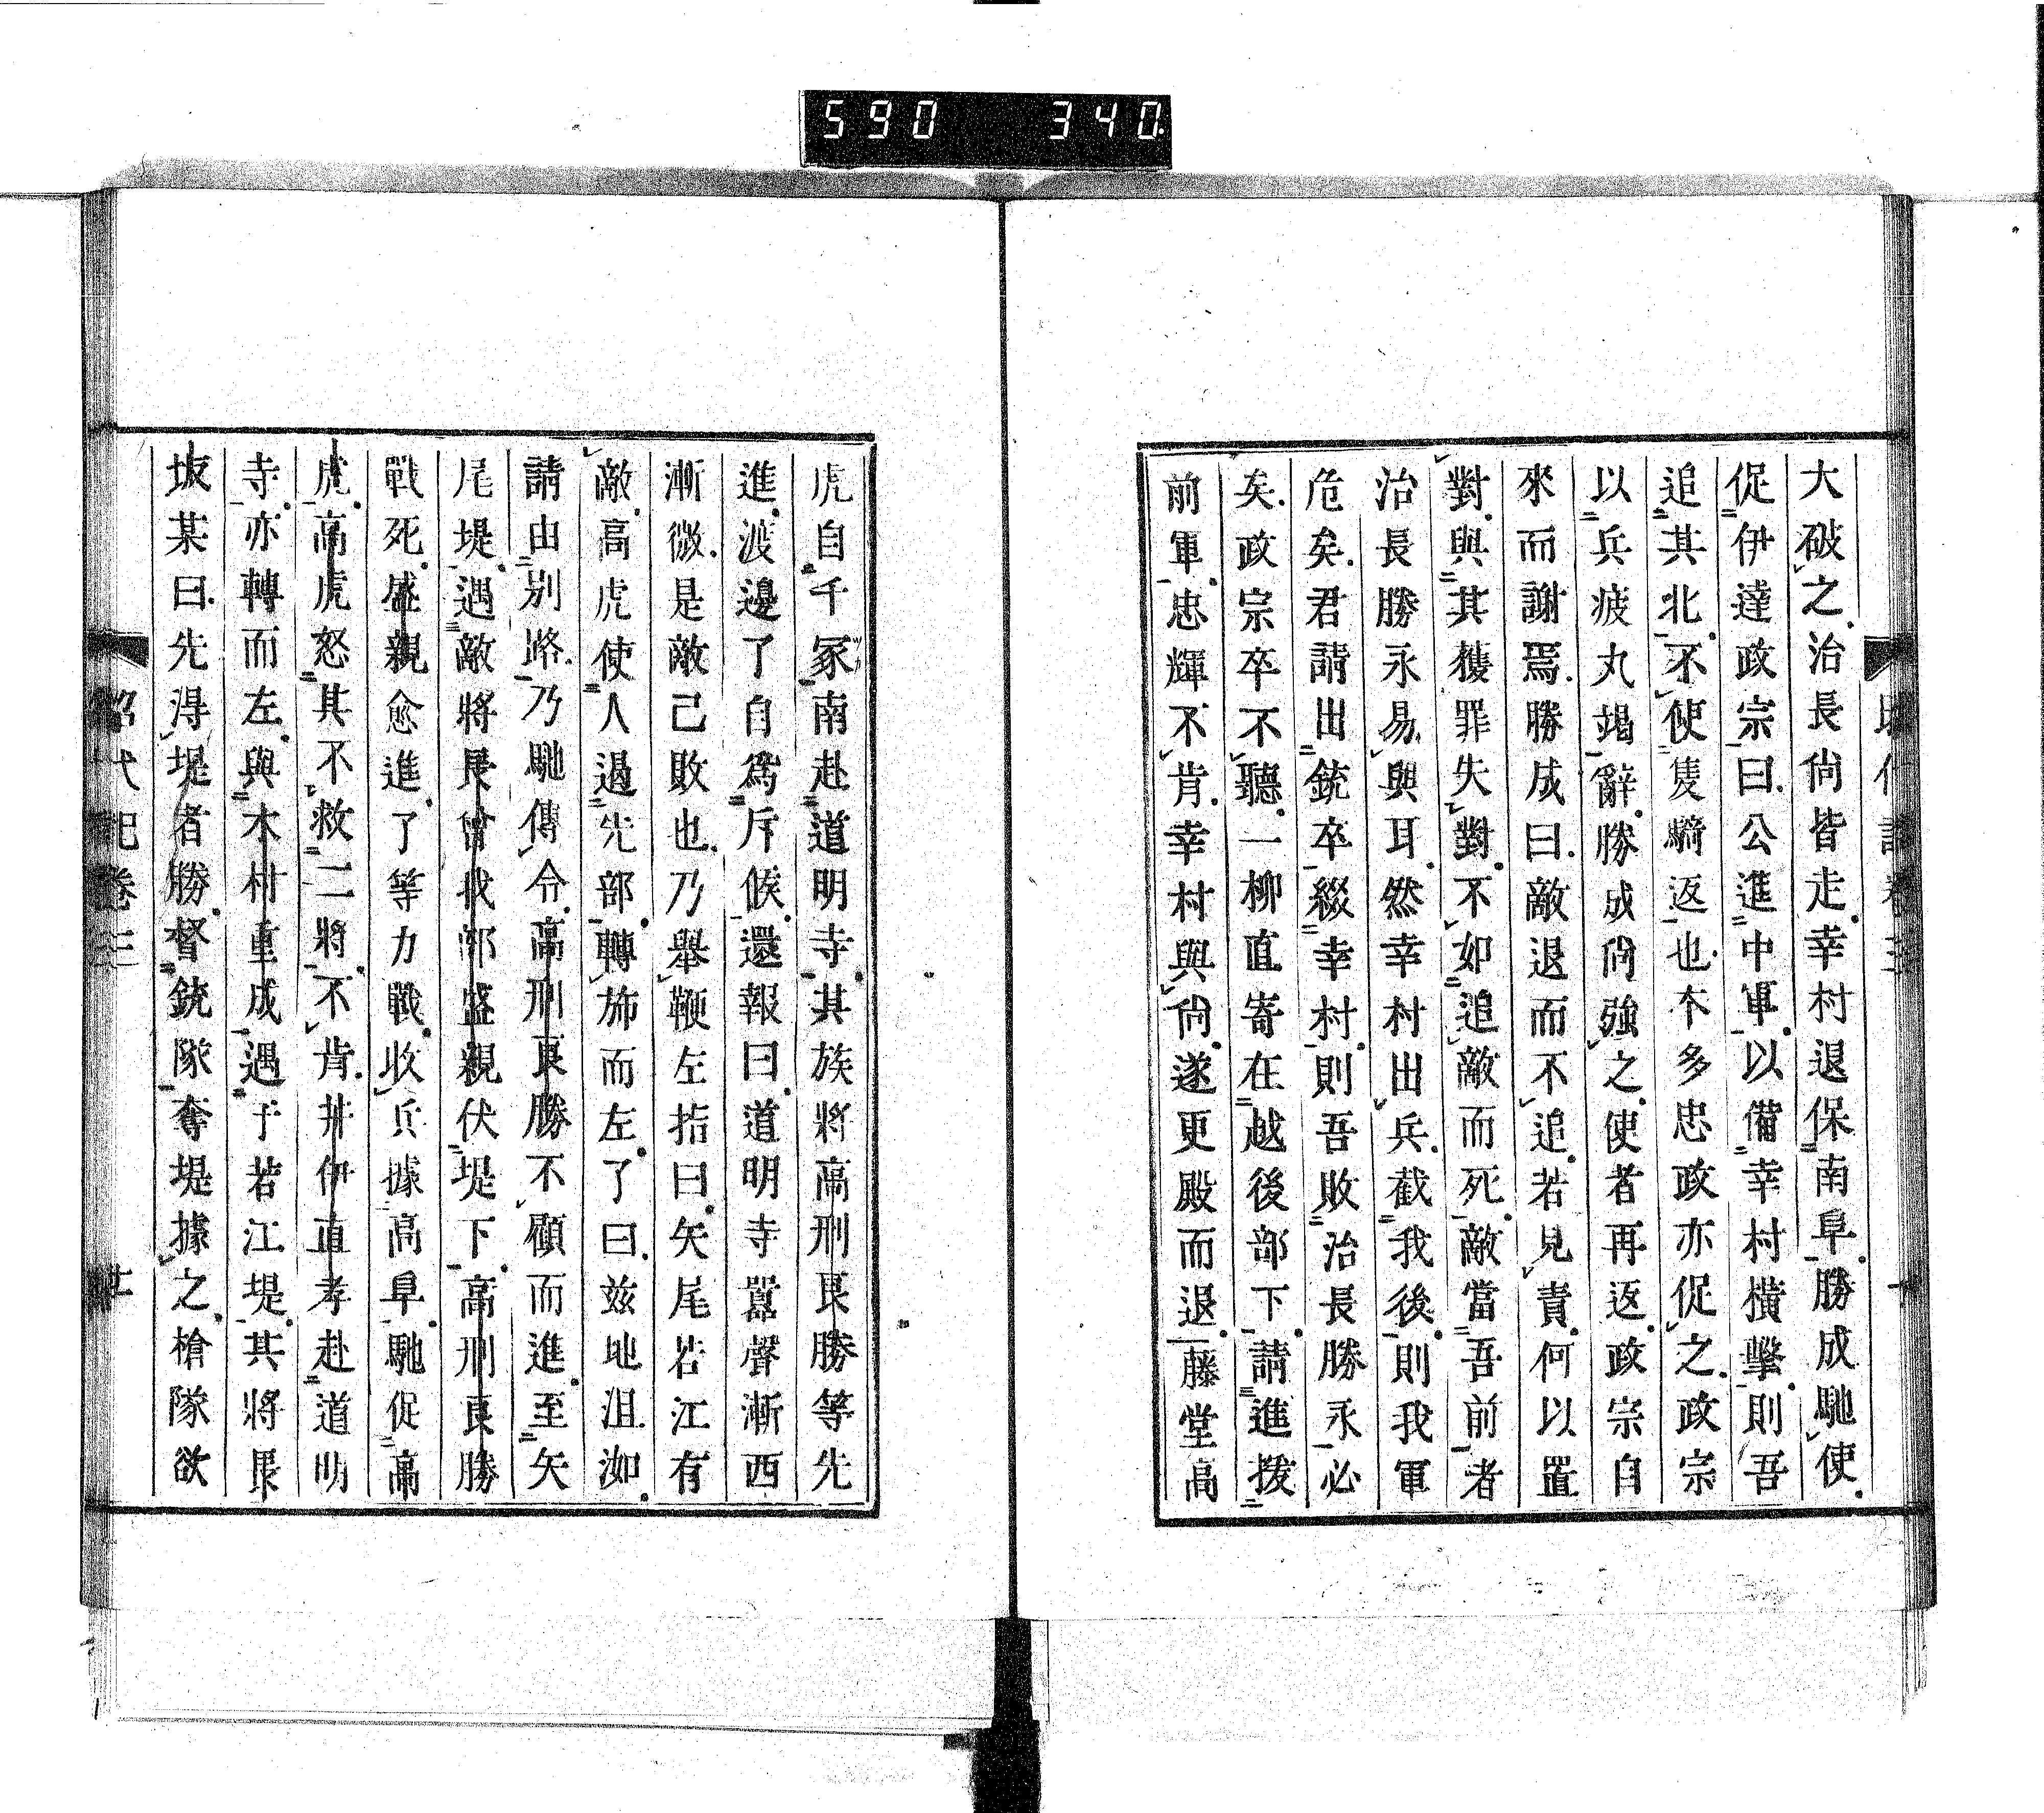 590 340
大破之治長尙皆走幸村退保南阜勝成馳使
促伊達政宗曰公進中軍以備幸村橫擊則吾
追其北不使隻騎返也本多忠政亦促之政宗
以兵疲丸竭辭勝成尙強之使者再返政宗自
來而謝焉勝成曰敵退而不追若見責何以置
對與其獲罪失對不如追敵而死敵當吾前者
治長勝永易與耳然幸村出兵截我後則我軍
危矣君請出銃卒綴幸村則吾敗治長勝永必
矣政宗卒不聽一柳直寄在越後部下請進援
前軍忠輝不肯幸村與尙遂更殿而退藤堂高
虎自千冢南赴道明寺其族將高刑良勝等先
進渡邊了自爲斥候還報曰道明寺囂聲漸西
漸微是敵已敗也乃舉鞭左指曰矢尾若江有
敵高虎使人遏先部轉斾而左了曰玆地沮洳
請由別路乃馳傳令高刑良勝不顧而進至矢
尾堤遇敵將長曾我部盛親伏堤下高刑良勝
戰死盛親愈進了等力戰收兵據高阜馳促高
虎高虎怒其不救二將不肯井伊直孝赴道明
寺亦轉而左與木村重成遇于若江堤其將長
坂某曰先得堤者勝督銃隊奪堤據之槍隊欲
昭代記卷三